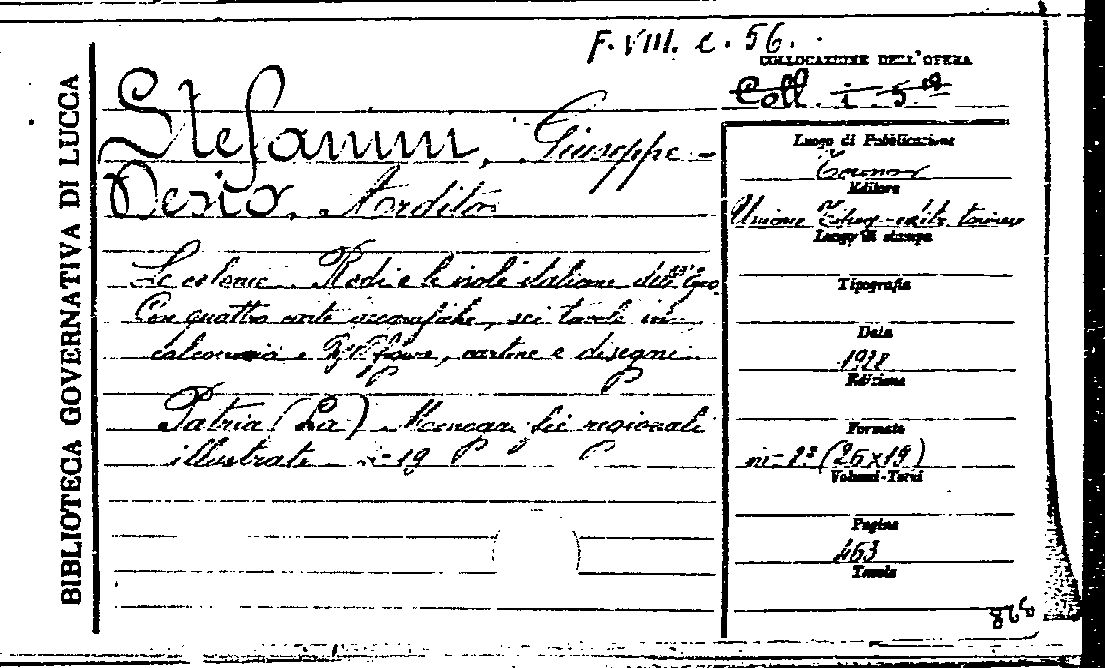 F. VIII. c. 56.
COLLOCAZIONE DELL'OPERA
Coll. i-5
BIBLIOTECA GOVERNATIVA DI LUCCA
Stefanini, Giuseppe -
Desio, Ardito
Le colonie. Rodi e le isole italiane dell'Egeo.
Con quattro carte geografiche, sei tavole in
calcografia e figure, cartine e disegni.
Patria (La) Monografie regionali
illustrate i-19
Luogo di Pubblicazione
Torino
Editore
Unione Tipog-edit. torinese
Luogo di stampa
Tipografia
Data
1928
Edizione
Formato
in-8° (26x19)
Volumi-Tomi
Pagine
463
Tavole